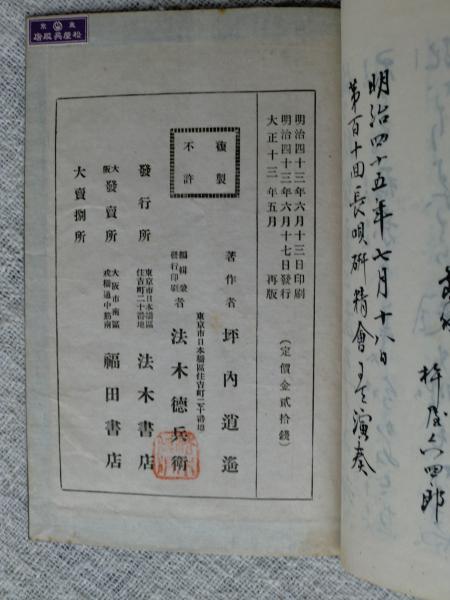 明治四十五年七月十八日
第百十回長唄研精會ニ於テ演奏
杵屋六四郎
東京
松屋呉服店
明治四十三年六月十三日印刷
明治四十三年六月十七日發行
大正十三年五月 再版
(定價金貳拾錢)
複製
不許
著作者 坪內逍遙
東京市日本橋區住吉町二十番地
編輯兼
發行印刷者 法木德兵衛
發行所 東京市日本橋區
住吉町二十番地 法木書店
大阪發賣所 大阪市南區
戎橋通中筋南 福田書店
大賣捌所